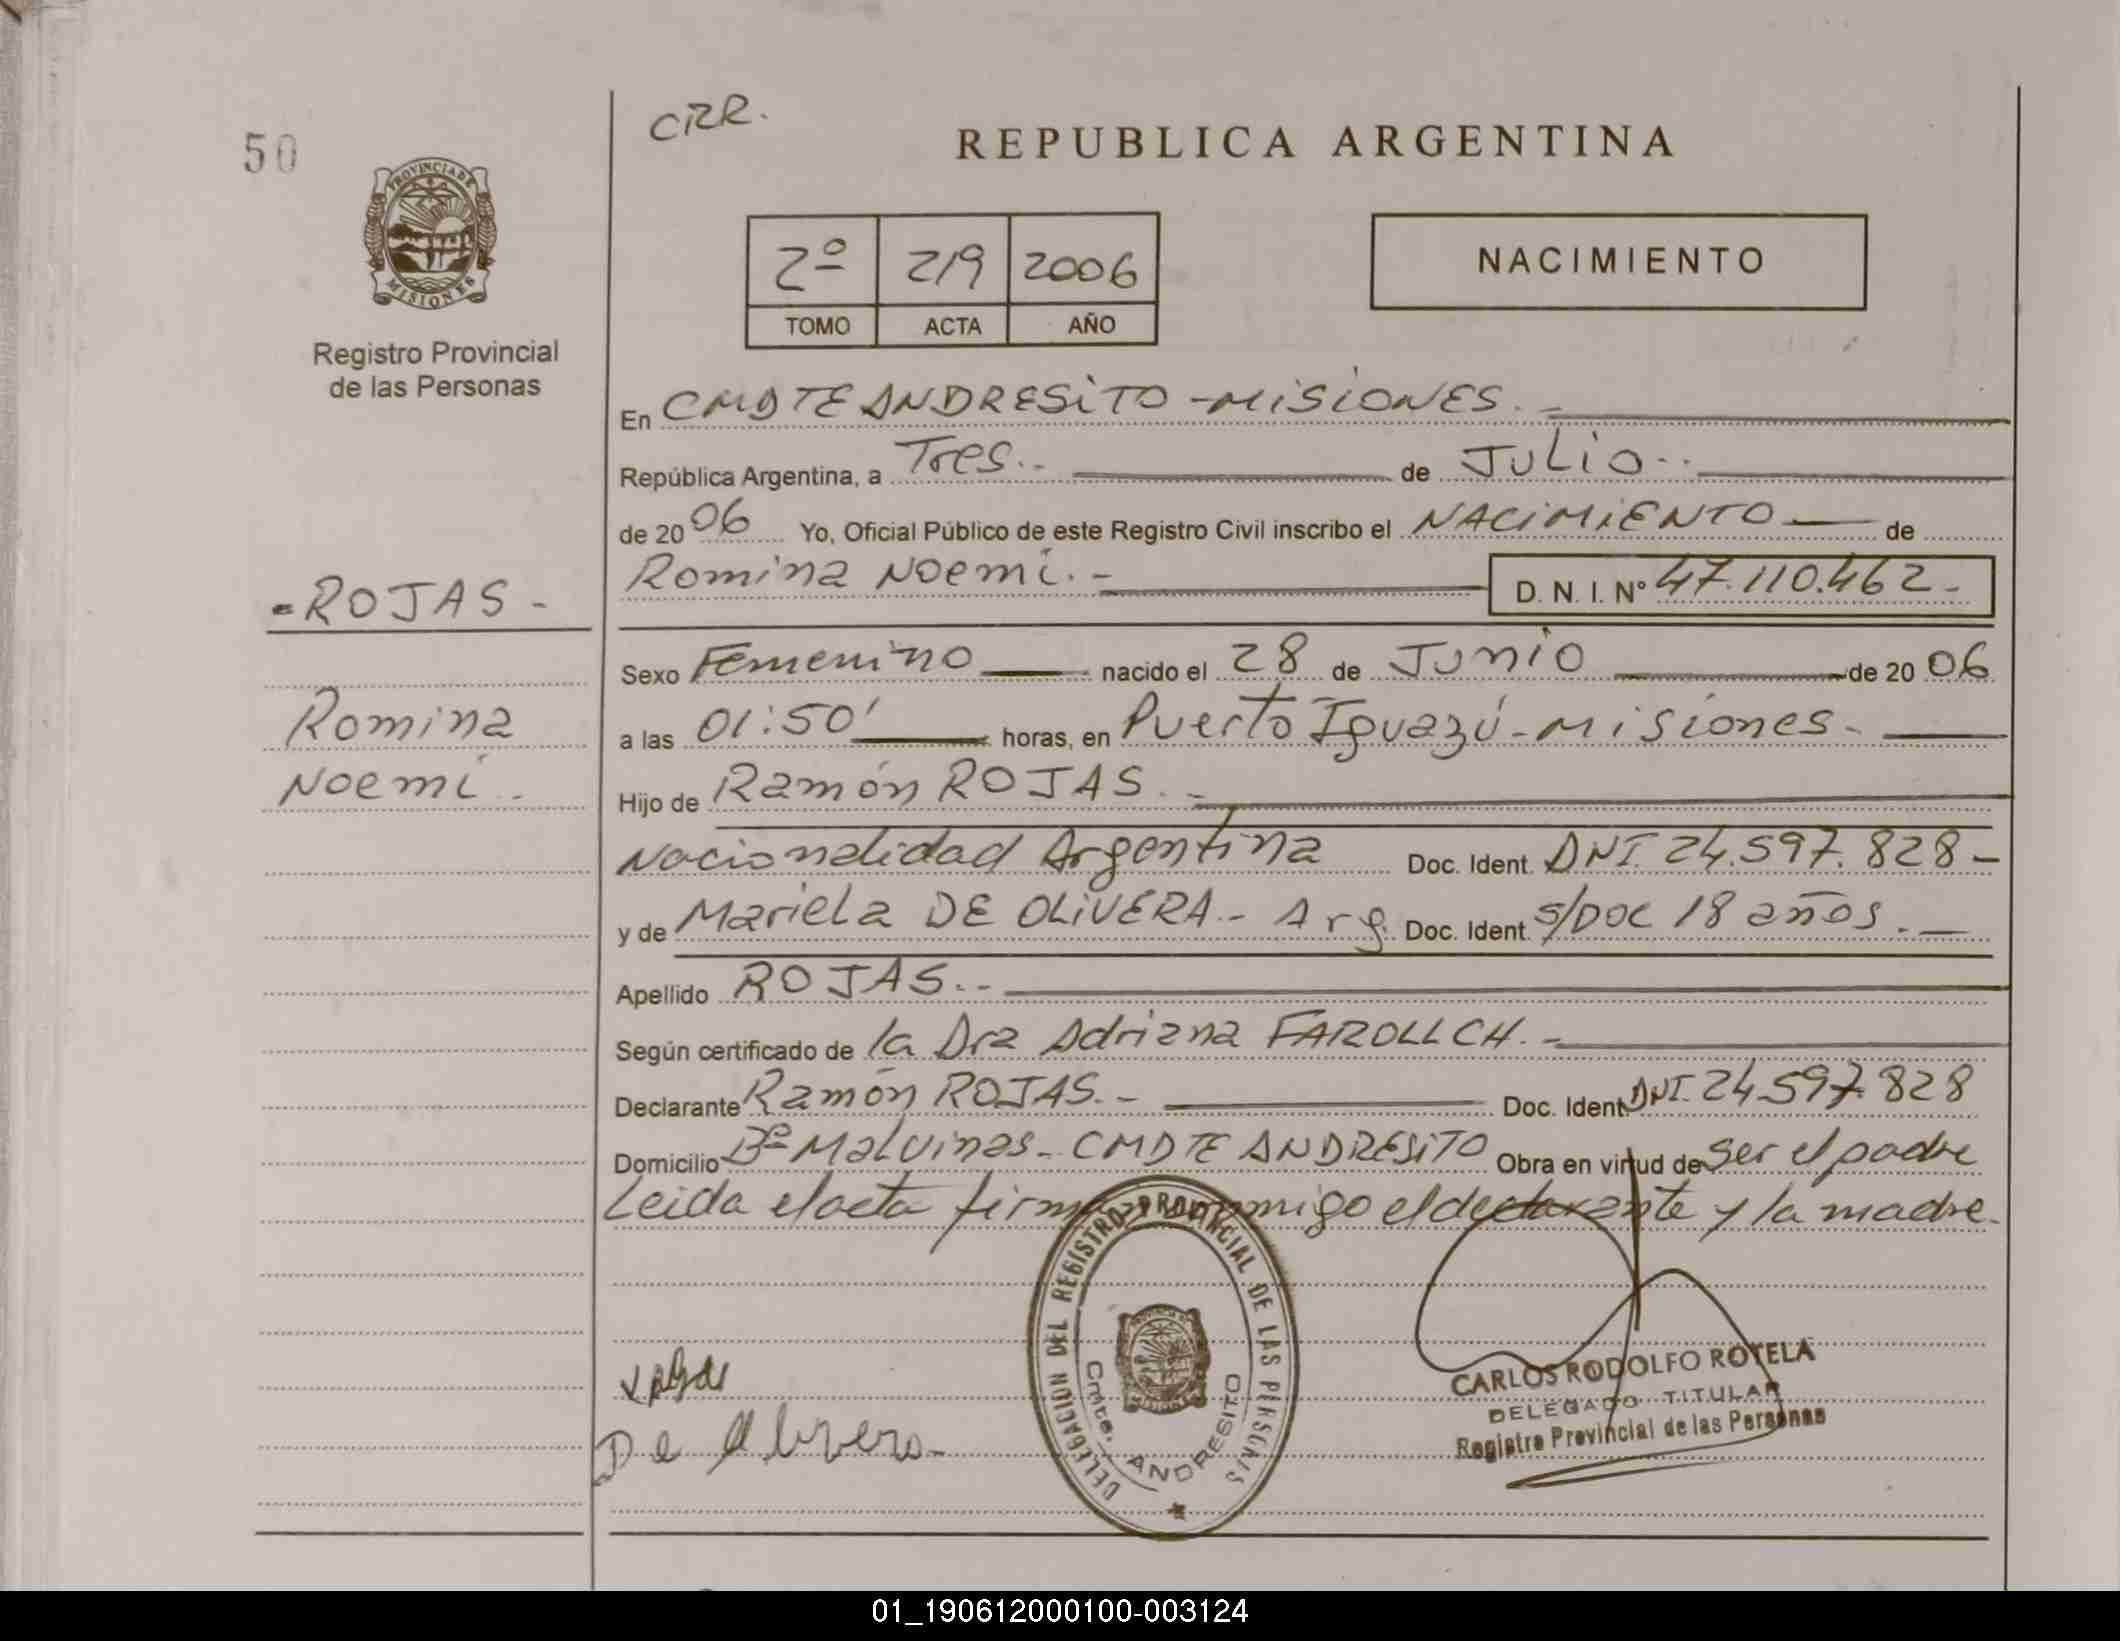 50
CRR.
REPUBLICA ARGENTINA
PROVINCIA DE
MISIONES
Registro Provincial
de las Personas
2º 219 2006
TOMO ACTA AÑO
NACIMIENTO
En CMDTE ANDRESiTO - MiSiONES. -
República Argentina, a Tres. - de JULiO. -
de 2006 Yo, Oficial Público de este Registro Civil inscribo el NACiMiENTO de
Romina Noemí. - D. N. I. Nº 47.110.462 -
- ROJAS -
Sexo Femenino nacido el 28 de Junio de 2006
Romina
a las 01:50' horas, en Puerto Iguazú - Misiones -
Noemí -
Hijo de Ramón ROJAS. -
Nacionalidad Argentina Doc. Ident. DNI. 24.597.828 -
y de Mariela DE OLiVERA. - Arg. Doc. Ident. S/DOC 18 años. -
Apellido ROJAS. -
Según certificado de la Dra Adriana FAROLLCH. -
Declarante Ramón ROJAS. - Doc. Ident. DNI. 24.597.828
Domicilio Bº Malvinas - CMDTE ANDRESiTO Obra en virtud de Ser el padre
Leida el acta firman conmigo el declarante y la madre.
DELEGACION DEL REGISTRO PROVINCIAL DE LAS PERSONAS
Cmte. ANDRESITO
MISIONES
CARLOS RODOLFO ROTELA
DELEGADO TITULAR
Registro Provincial de las Personas
De
01_190612000100-003124